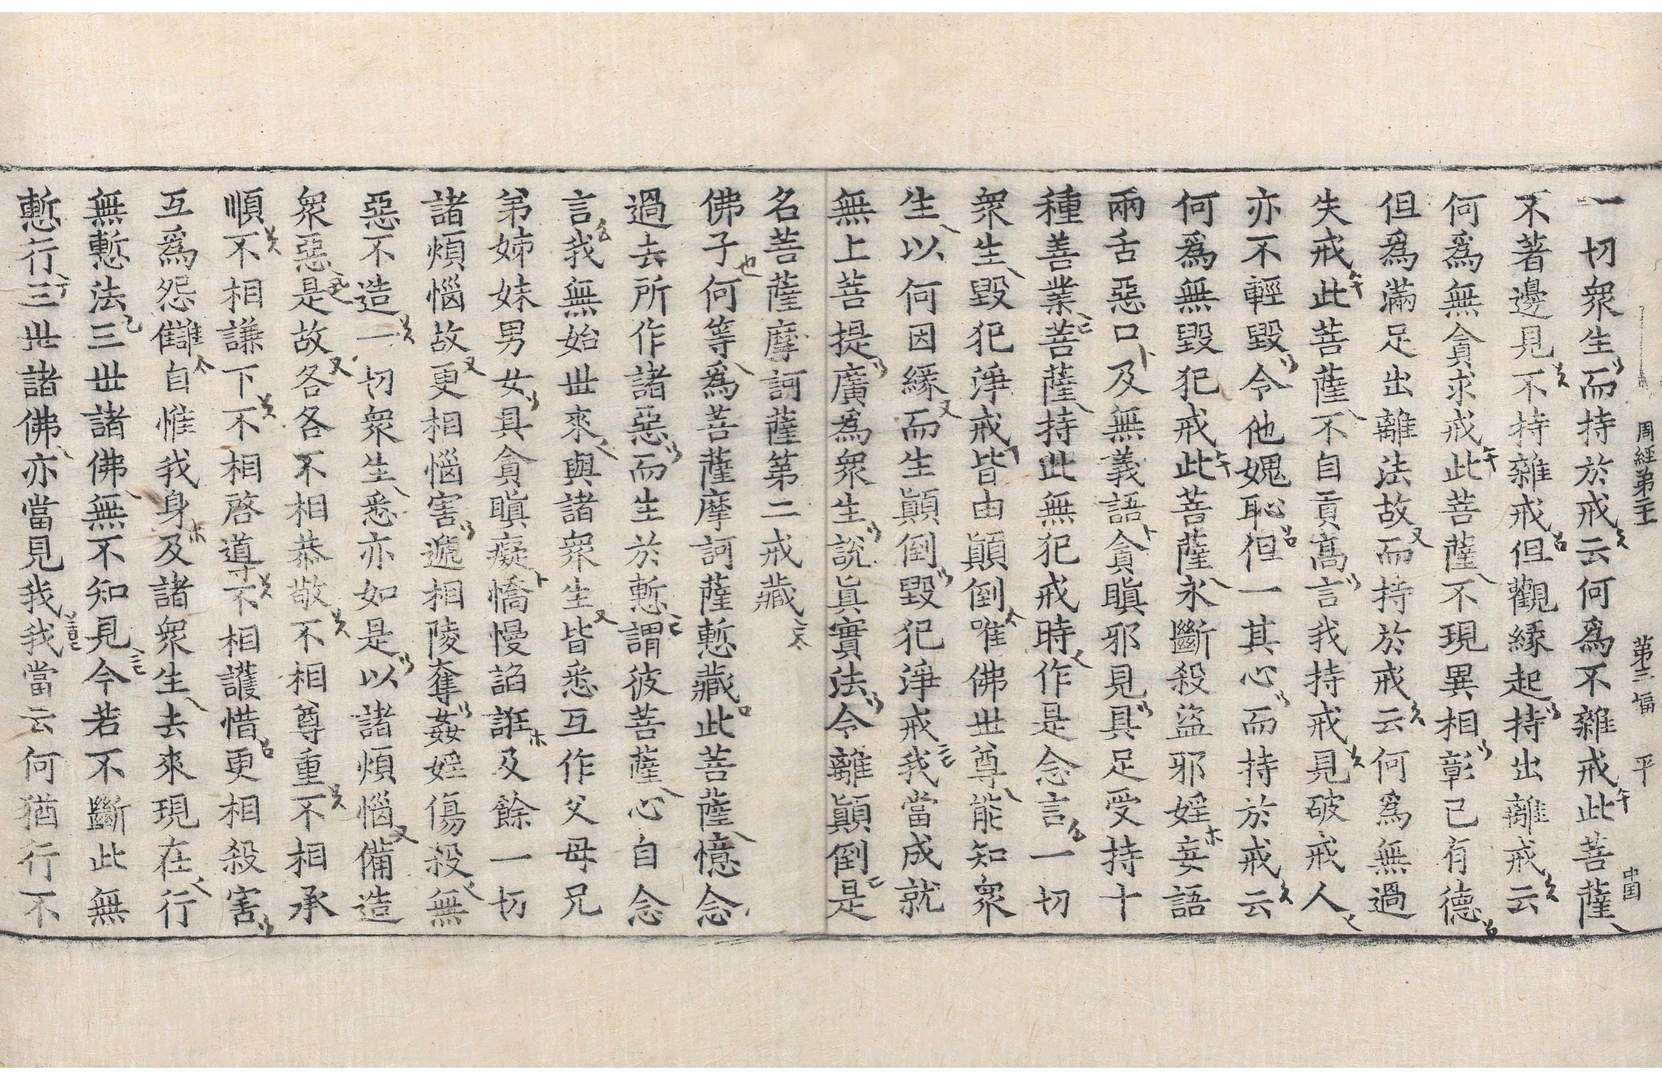 周經第二十 第三幅 平 中国
一切衆生而持於戒云何爲不雜戒此菩薩
不著邊見不持雜戒但觀緣起持出離戒云
何爲無貪求戒此菩薩不現異相彰己有德
但爲滿足出離法故而持於戒云何爲無過
失戒此菩薩不自貢高言我持戒見破戒人
亦不輕毀令他媿恥但一其心而持於戒云
何爲無毀犯戒此菩薩永斷殺盜邪婬妄語
兩舌惡口及無義語貪瞋邪見具足受持十
種善業菩薩持此無犯戒時作是念言一切
衆生毀犯淨戒皆由顚倒唯佛世尊能知衆
生以何因緣而生顚倒毀犯淨戒我當成就
無上菩提廣爲衆生說眞實法令離顚倒是
名菩薩摩訶薩第二戒藏
佛子何等爲菩薩摩訶薩慙藏此菩薩憶念
過去所作諸惡而生於慙謂彼菩薩心自念
言我無始世來與諸衆生皆悉互作父母兄
弟姊妹男女具貪瞋癡憍慢諂誑及餘一切
諸煩惱故更相惱害遞相陵奪姦婬傷殺無
惡不造一切衆生悉亦如是以諸煩惱備造
衆惡是故各各不相恭敬不相尊重不相承
順不相謙下不相啓導不相護惜更相殺害
互爲怨讎自惟我身及諸衆生去來現在行
無慙法三世諸佛無不知見今若不斷此無
慙行三世諸佛亦當見我我當云何猶行不